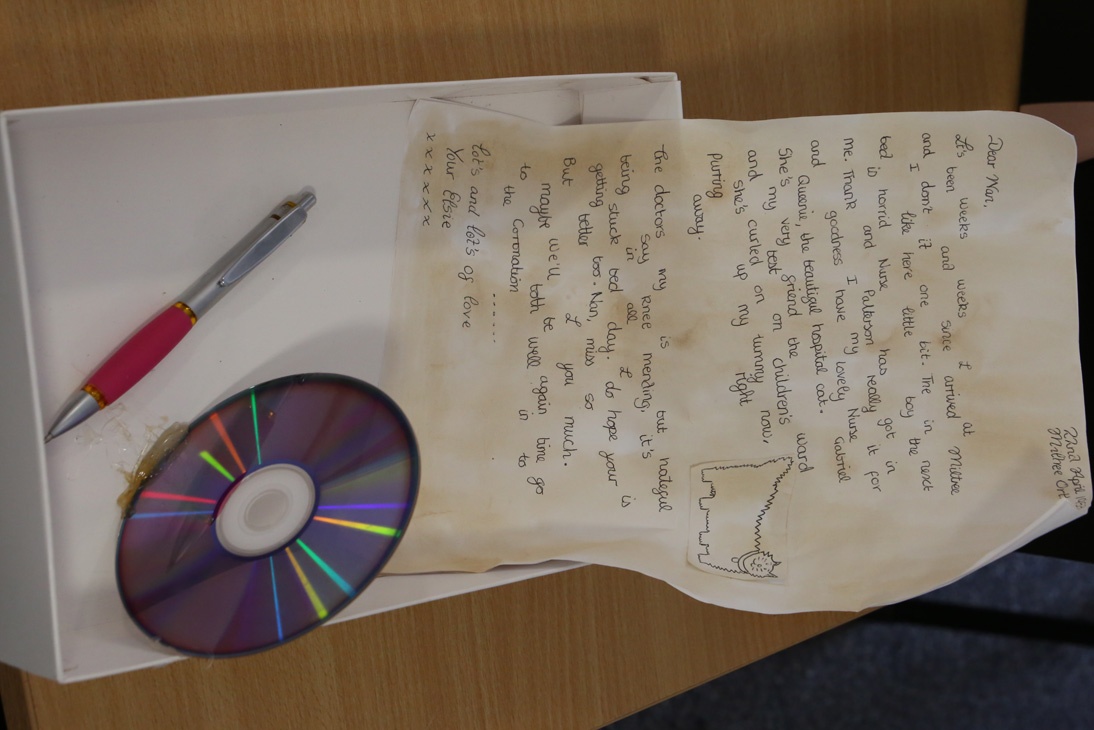 22nd April
Miltree Ort
Dear Nan,
It's been weeks and weeks since I arrived at Miltree
and I don't like it here one little bit. The boy in the next
bed is horrid and Nurse Patterson has really got it in for
me. Thank goodness I have my lovely Nurse Gabriel
and Queenie, the beautiful hospital cat.
She's my very best friend on the children's ward
and she's curled up on my tummy right now,
purring away.
The doctors say my knee is mending, but it's hateful
being stuck in bed all day. I do hope your is
getting better too. Nan, I miss you so much.
But maybe we'll both be well again in time to go
to the Coronation ......
Lot's and lot's of love
Your Elsie
x x x x x x x